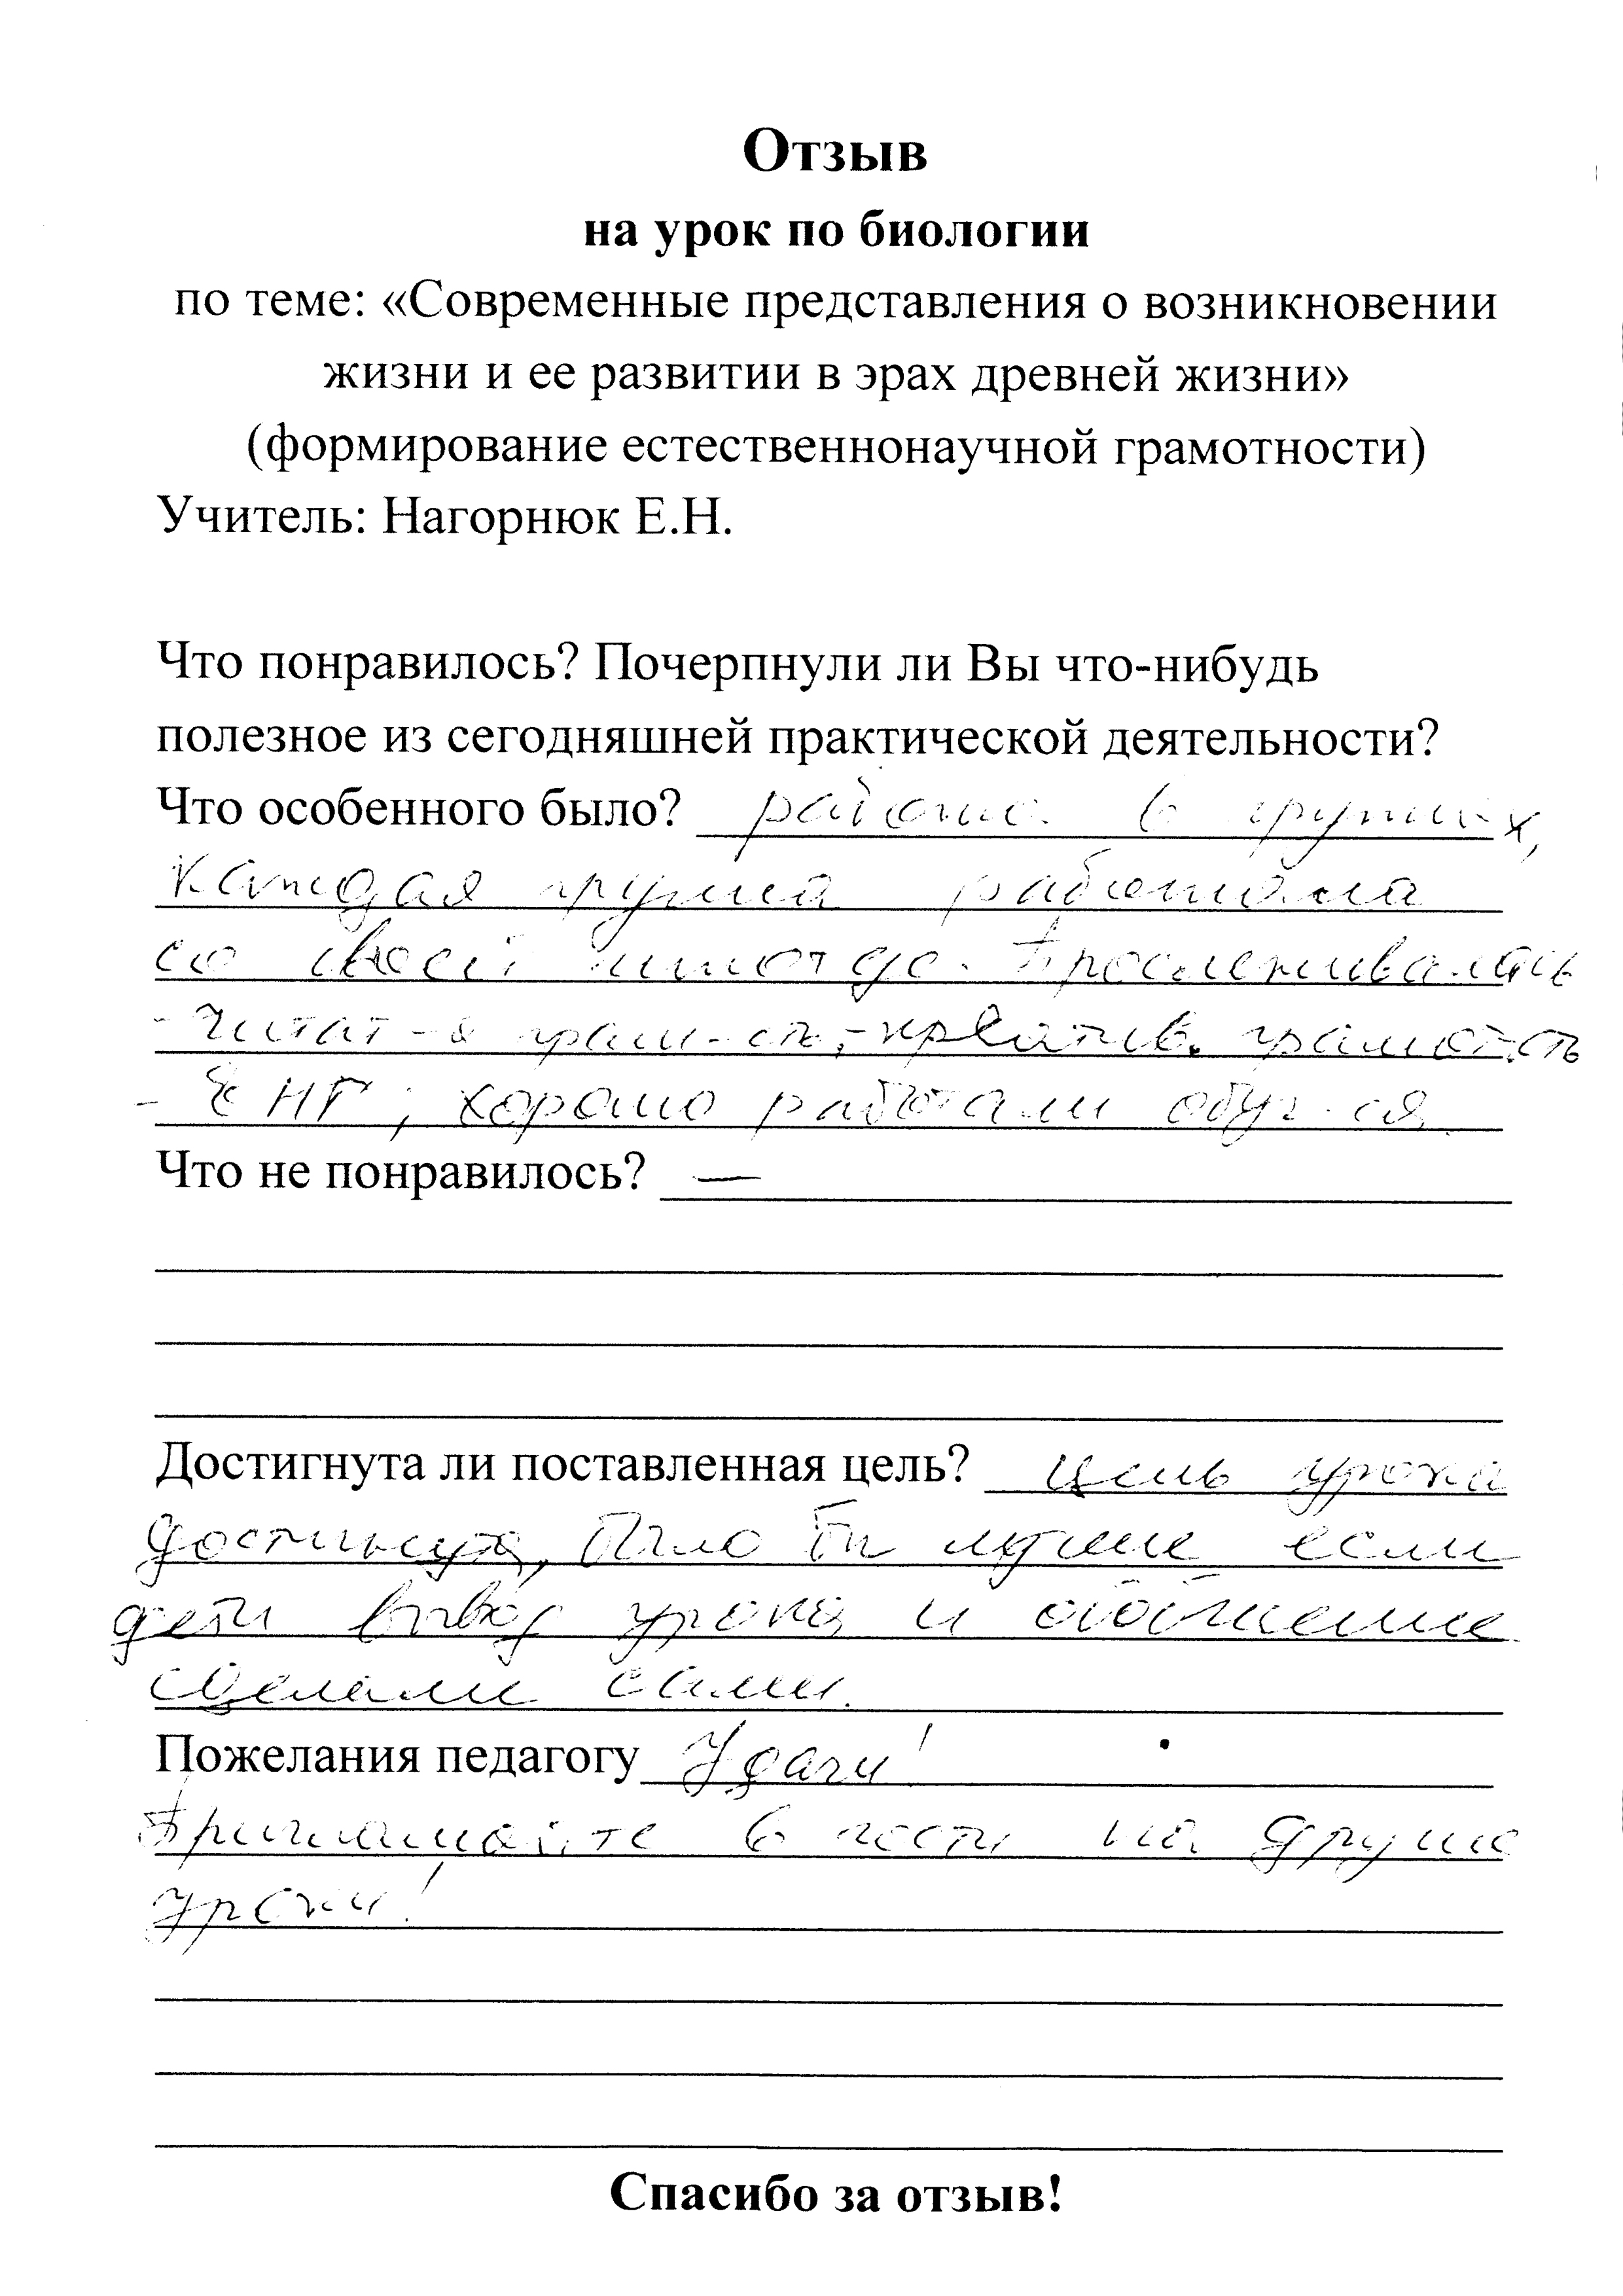 Отзыв
на урок по биологии
по теме: «Современные представления о возникновении
жизни и ее развитии в эрах древней жизни»
(формирование естественнонаучной грамотности)
Учитель: Нагорнюк Е.Н.
Что понравилось? Почерпнули ли Вы что-нибудь
полезное из сегодняшней практической деятельности?
Что особенного было? работа в группах,
каждая группа работала
со своей Прослеживалась
- читат-я грам-ть, - креатив. грамот-сть
- ЕНГ; хорошо работали обуч-ся.
Что не понравилось? —
Достигнута ли поставленная цель? Цель урока
достигнута, Было бы лучше если
дети вывод урока и обобщение
сделали сами.
Пожелания педагогу Удачи!
Приглашайте в гости на другие
уроки!
Спасибо за отзыв!